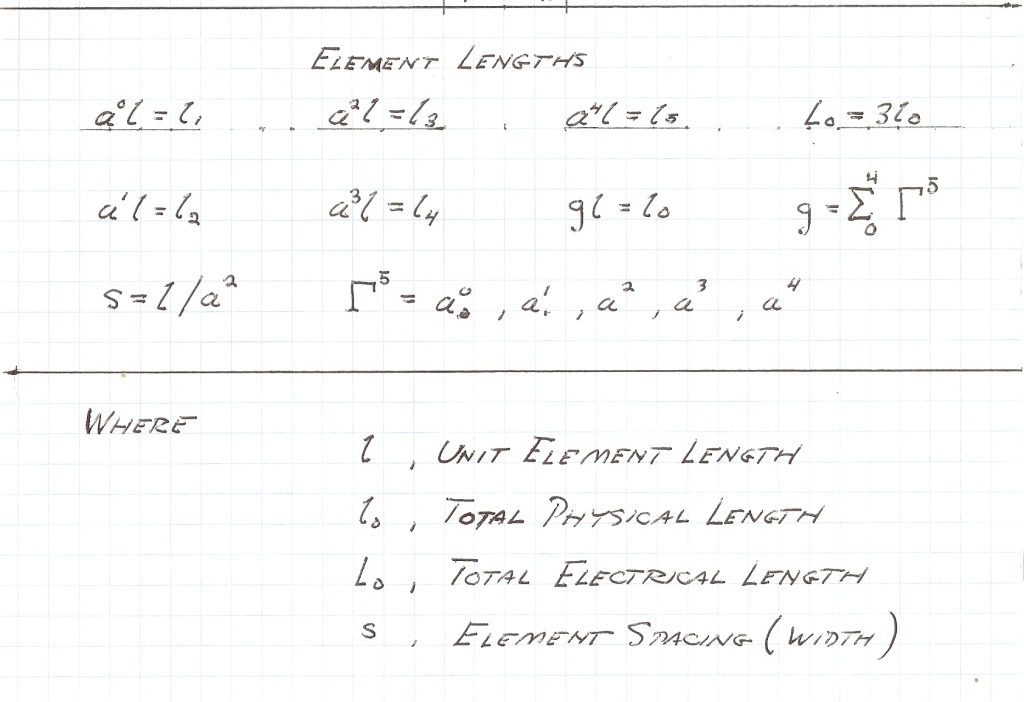 ELEMENT LENGTHS
a⁰l = l₁ a²l = l₃ a⁴l = l₅ L₀ = 3l₀
a¹l = l₂ a³l = l₄ gl = l₀ g = Σ₀⁴ Γ⁵
s = l/a² Γ⁵ = a⁰, a¹, a², a³, a⁴
WHERE
l, UNIT ELEMENT LENGTH
l₀, TOTAL PHYSICAL LENGTH
L₀, TOTAL ELECTRICAL LENGTH
s, ELEMENT SPACING (WIDTH)